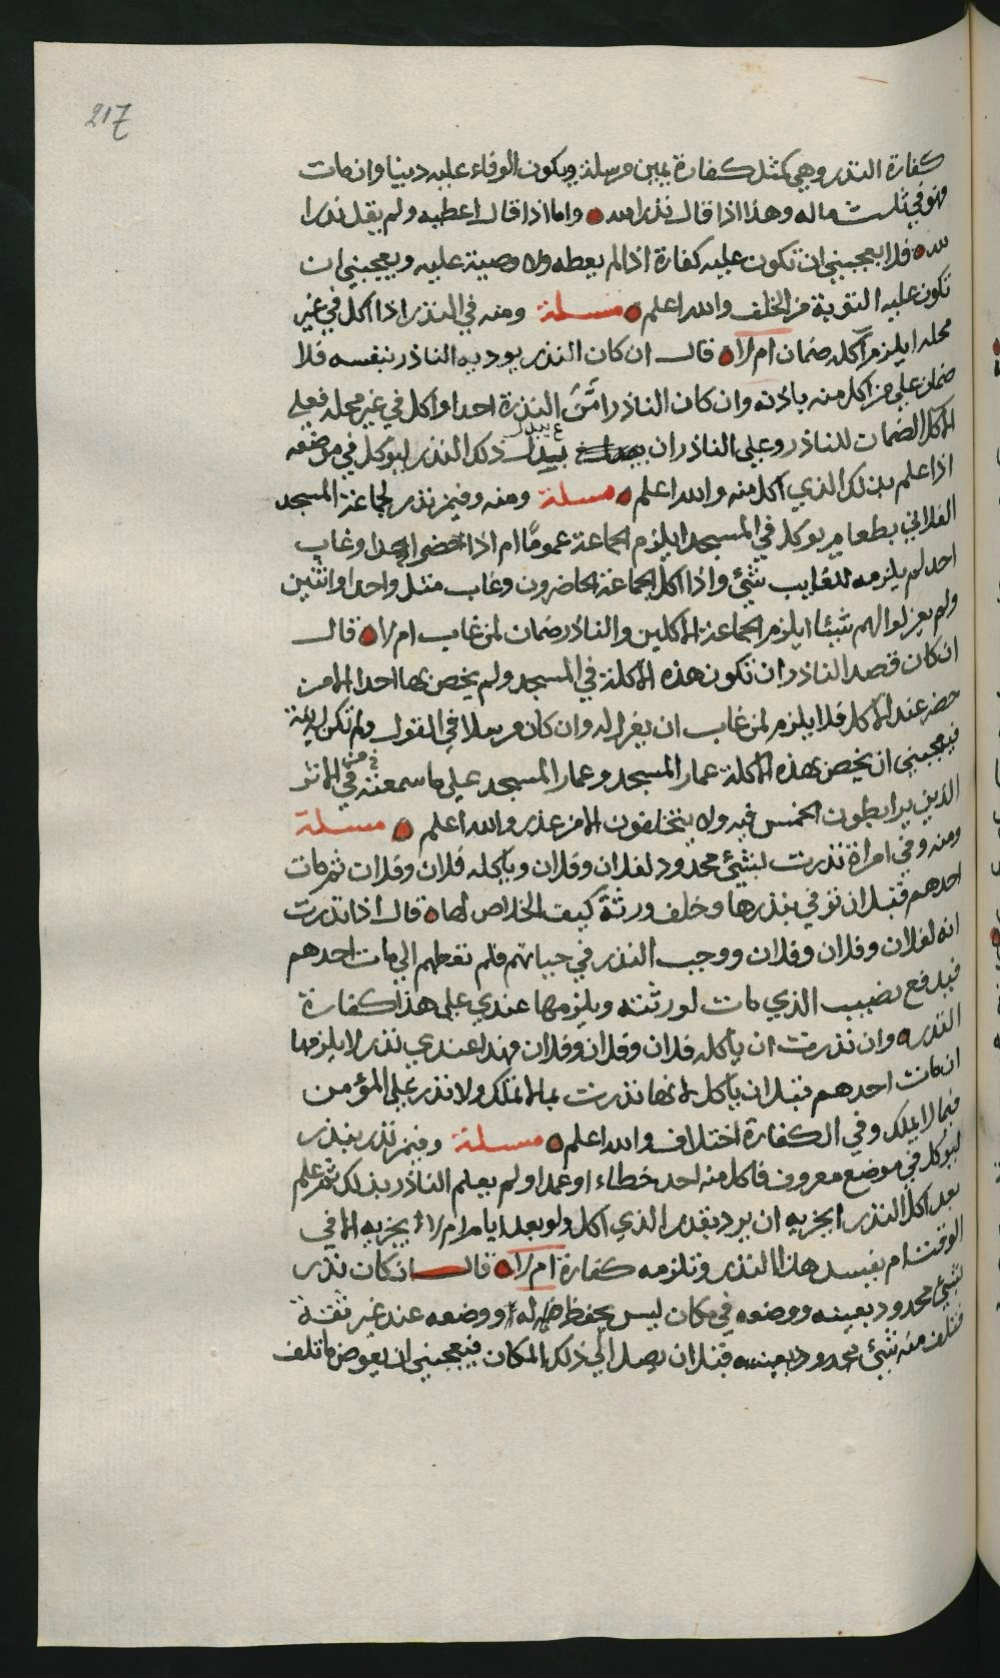 217
كفارة النذر وهي كمثل كفارة يمين مرسلة ويكون الوفاء عليه دينا وان مات
فهو في ثلث ماله وهذا اذا قال نذرا لله واما اذا قال اعطيه ولم يقل نذرا
لله فلا يعجبني ان تكون عليه كفارة اذا لم يعطه ولا وصية عليه ويعجبني ان
تكون عليه التوبة من الخلف والله اعلم مسئلة ومنه في النذر اذا اكل في غير
محله ايلزم آكله ضمان ام لا قال ان كان النذر يوديه الناذر بنفسه فلا
ضمان على من اكل منه باذنه وان كان الناذر امّن النذرة احدا واكل في غير محله فعلى
الآكل الضمان للناذر وعلى الناذر ان يبدل ذلك النذر ليوكل في موضعه
اذا علم بذلك الذي اكل منه والله اعلم مسئلة ومنه وفيمن نذر لجماعة المسجد
الفلاني بطعام يوكل في المسجد ايلزم الجماعة عموما ام اذا حضر احدا وغاب
احد لم يلزمه للغايب شيئ واذا اكل الجماعة الحاضرون وغاب مثل واحد او اثنين
ولم يعزلوا لهم شيئا ايلزم الجماعة الآكلين والناذر ضمان لمن غاب ام لا قال
ان كان قصد الناذر ان تكون هذه الأكلة في المسجد ولم يخص بها احدا الا من
حضر عند الأكل فلا يلزم لمن غاب ان يعزل له وان كان مرسلا في القول ولم تكن له نية
فيعجبني ان يخص بهذه الأكلة عمار المسجد وعمار المسجد على ما سمعته في الاثر
الذين يرابطون الخمس فيه ولا يتخلفون الا من عذر والله اعلم مسئلة
ومنه وفي امراة نذرت لشيئ محدود لفلان وفلان وياكله فلان وفلان ثم مات
احدهم قبل ان توفي بنذرها وخلف ورثة كيف الخلاص لها قال اذا نذرت
انه لفلان وفلان وفلان ووجب النذر في حياتهم فلم تعطهم الى مات احدهم
فيدفع نصيب الذي مات لورثته ويلزمها عندي على هذا كفارة
النذر وان نذرت ان ياكله فلان وفلان وفلان فهذا عندي نذر لا يلزمها
ان مات احدهم قبل ان ياكل لانها نذرت بما لا تملك ولا نذر على المؤمن
فيما لا يملك وفي الكفارة اختلاف والله اعلم مسئلة وفيمن نذر بنذر
ليوكل في موضع معروف فاكل منه احد خطاء او عمدا ولم يعلم الناذر بذلك ثم علم
بعد اكل النذر ايجزيه ان يرد بقدر الذي اكل ولو بعد ايام ام لا يجزيه الا في
الوقت ام يفسد هذا النذر وتلزمه كفارة ام لا قال ان كان نذر
لشيئ محدود بعينه ووضعه في مكان ليس يحفظ له ووضعه عند غير ثقة
فتلف منه شيئ محدود بعينه قبل ان يصل الى ذلك المكان فيعجبني ان يعوض ما تلف